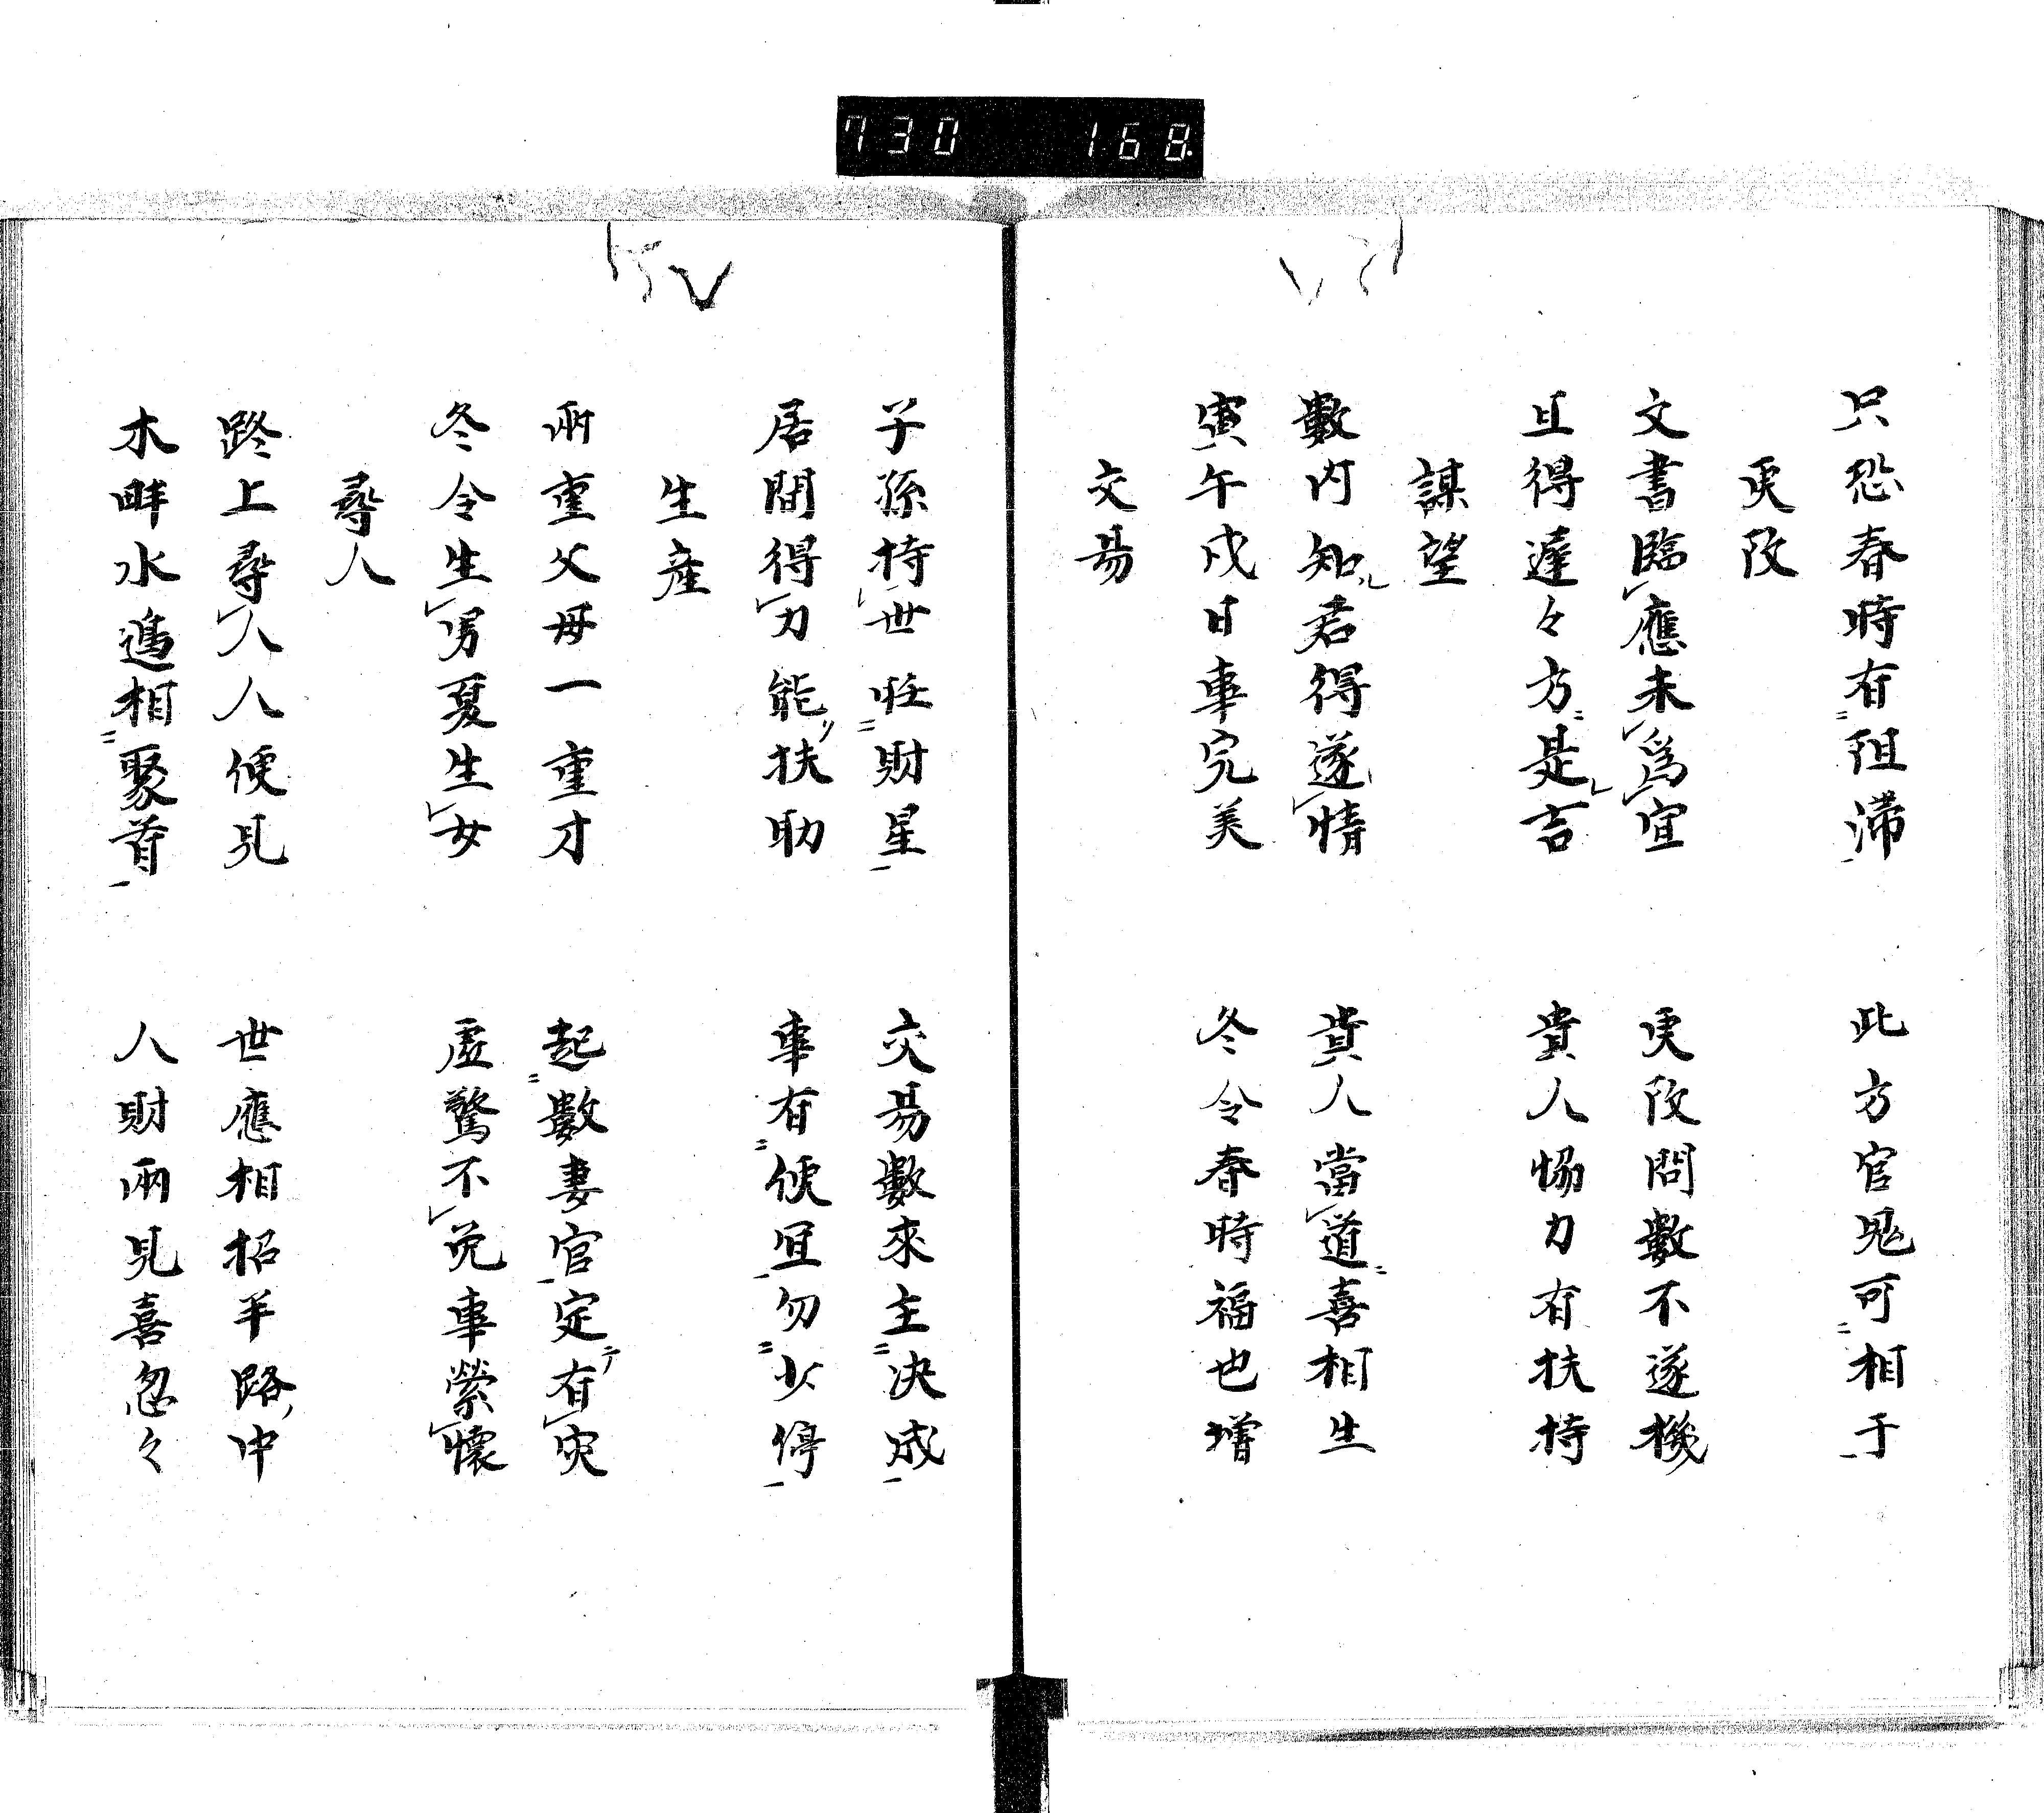 730 168
只恐春時有阻滯 此方官鬼可相于
更改
文書臨應未爲宜 更改問數不遂機
且得遲々方是吉 貴人協力有扶持
謀望
數内知君得遂情 貴人當道喜相生
寅午戌日事完美 冬令春時福也增
交易
子孫持世旺財星 交易數來主決成
居間得力能扶助 事有便宜勿少停
生産
兩重父母一重才 起數妻官定有灾
冬令生男夏生女 虛驚不免事縈懷
尋人
路上尋人人便見 世應相招半路中
木畔水邊相聚首 人財兩見喜忽々